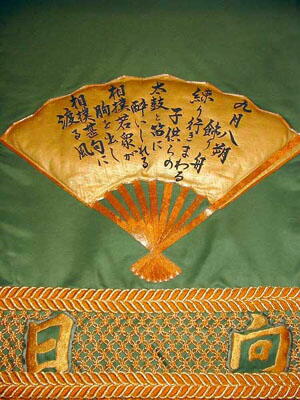 九月八朔
飾り舟
練り行きまわる
子供らの
太鼓と笛に
酔いしれる
相撲若衆が
胸を出し
相撲甚句に
渡る風
日向